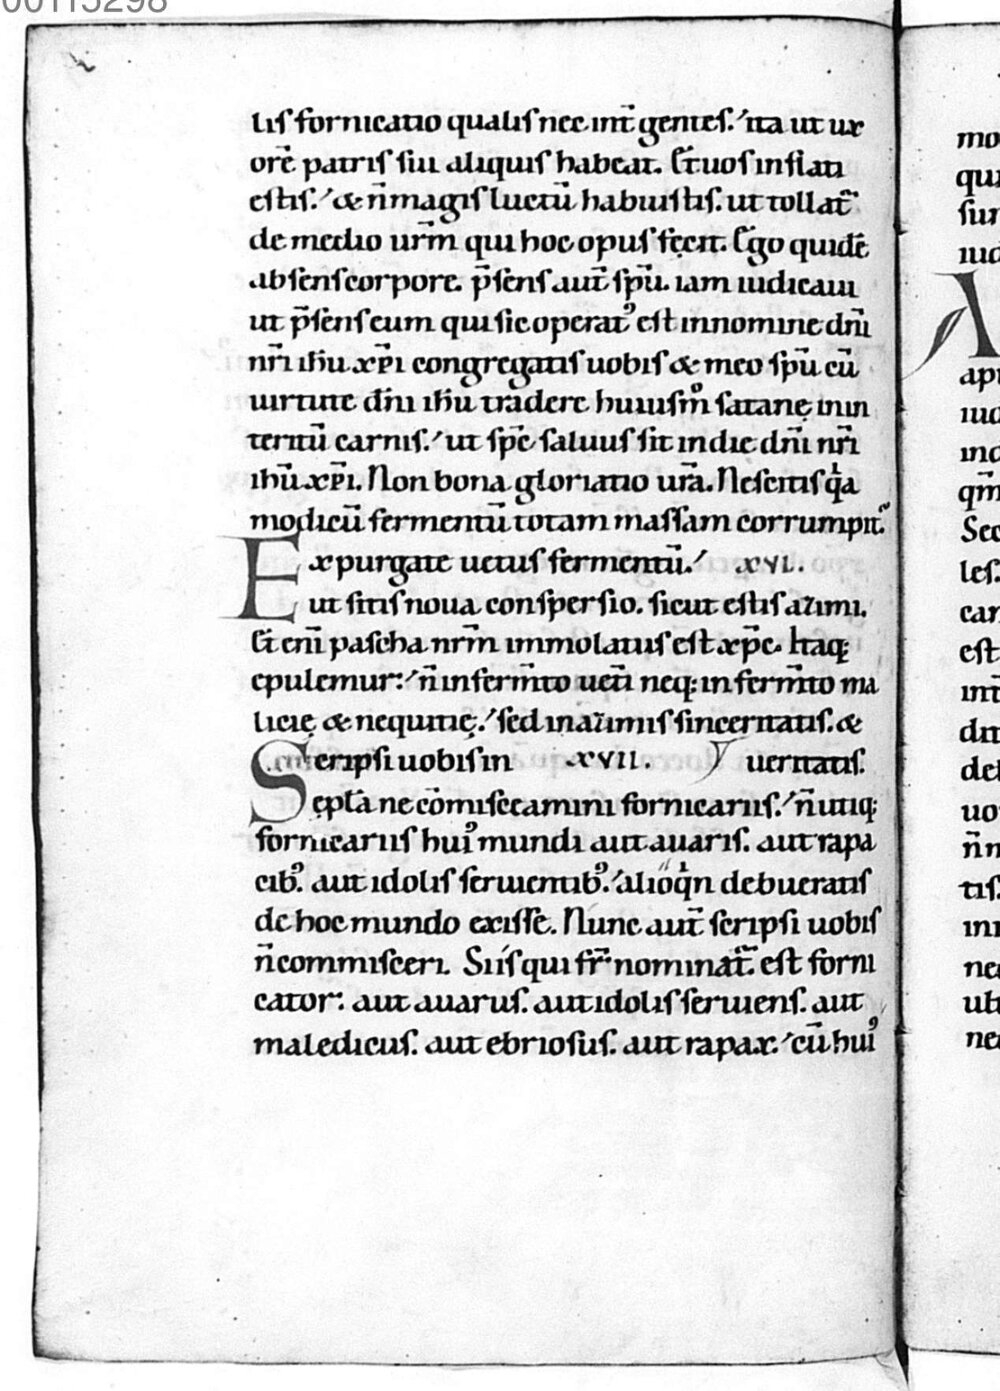 00115298
lis fornicatio qualis nec int̄ gentes. ita ut ux
orē patris sui aliquis habeat. Et uos inflati
estis. & n̄ magis luctū habuistis. ut tollat᷑
de medio ur̄m qui hoc opus fecit. Ego quidē
absens corpore. p̄sens aut̄ sp̄u. iam iudicaui
ut p̄sens eum qui sic operatꝰ est in nomine dn̄i
nr̄i ih̄u xp̄i congregatis uobis & meo sp̄u cū
uirtute dn̄i ih̄u tradere huiusmͦ satanę in in
teritū carnis. ut sp̄c saluus sit in die dn̄i nr̄i
ih̄u xp̄i. Non bona gloriatio ur̄a. Nescitis qͥa
modicū fermentū totam massam corrumpit.
Expurgate uetus fermentū. xvi.
ut sitis noua conspersio. sicut estis azimi.
Et eni᷑ pascha nr̄m immolatus est xp̄c. Itaq;
epulemur. n̄ in ferm̄to ueti᷑ neq; in ferm̄to ma
licię & nequitię. sed in azimis sinceritatis. &
Scripsi uobis in xvii. ueritatis.
epl̄a ne cōmisceamini fornicariis. n̄ utiq;
fornicariis huiꝰ mundi aut auaris. aut rapa
cibꝰ. aut idolis seruientibꝰ. alioqͥn debueratis
de hoc mundo exisse. Nunc aut̄ scripsi uobis
n̄ commisceri. Si is qui fr̄ nominat᷑. est forni
cator. aut auarus. aut idolis seruiens. aut
maledicus. aut ebriosus. aut rapax. cū huiꝰ
mo
qui
sun
iud
A
apu
iud
qm̄
Sec
les.
car
est
int̄
deb
uo
n̄n
tis.
ub
nec